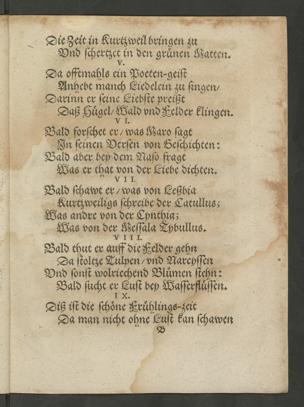 Die Zeit in Kurtzweil bringen zu
Vnd schertzet in den grünen Matten.
V.
Da offtmahls ein Poeten-geist
Anhebt manch Liedelein zu singen/
Darinn er seine Liebste preißt
Daß Hügel/ Wald vnd Felder klingen.
VI.
Bald forschet er/ was Maro sagt
In seinen Versen von Geschichten:
Bald aber bey dem Naso fragt
Was er that von der Liebe dichten.
VII.
Bald schawt er/ was von Leßbia
Kurtzweiligs schreibe der Catullus;
Was andre von der Cynthia;
Was von der Messala Tybullus.
VIII.
Bald thut er auff die Felder gehn
Da stoltze Tulpen/ vnd Narcyssen
Vnd sonst wolriechend Blumen stehn:
Bald sucht er Lust bey Wasserflüssen.
IX.
Diß ist die schöne Frühlings-zeit
Da man nicht ohne Lust kan schawen
B